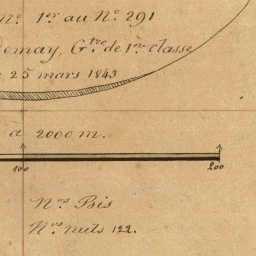 Nº 1er au Nº 291
Demay, Gtre de 1re classe
25 mars 1843
à 2000 m.
100 200
Nos Bis
Nos nuls 122.